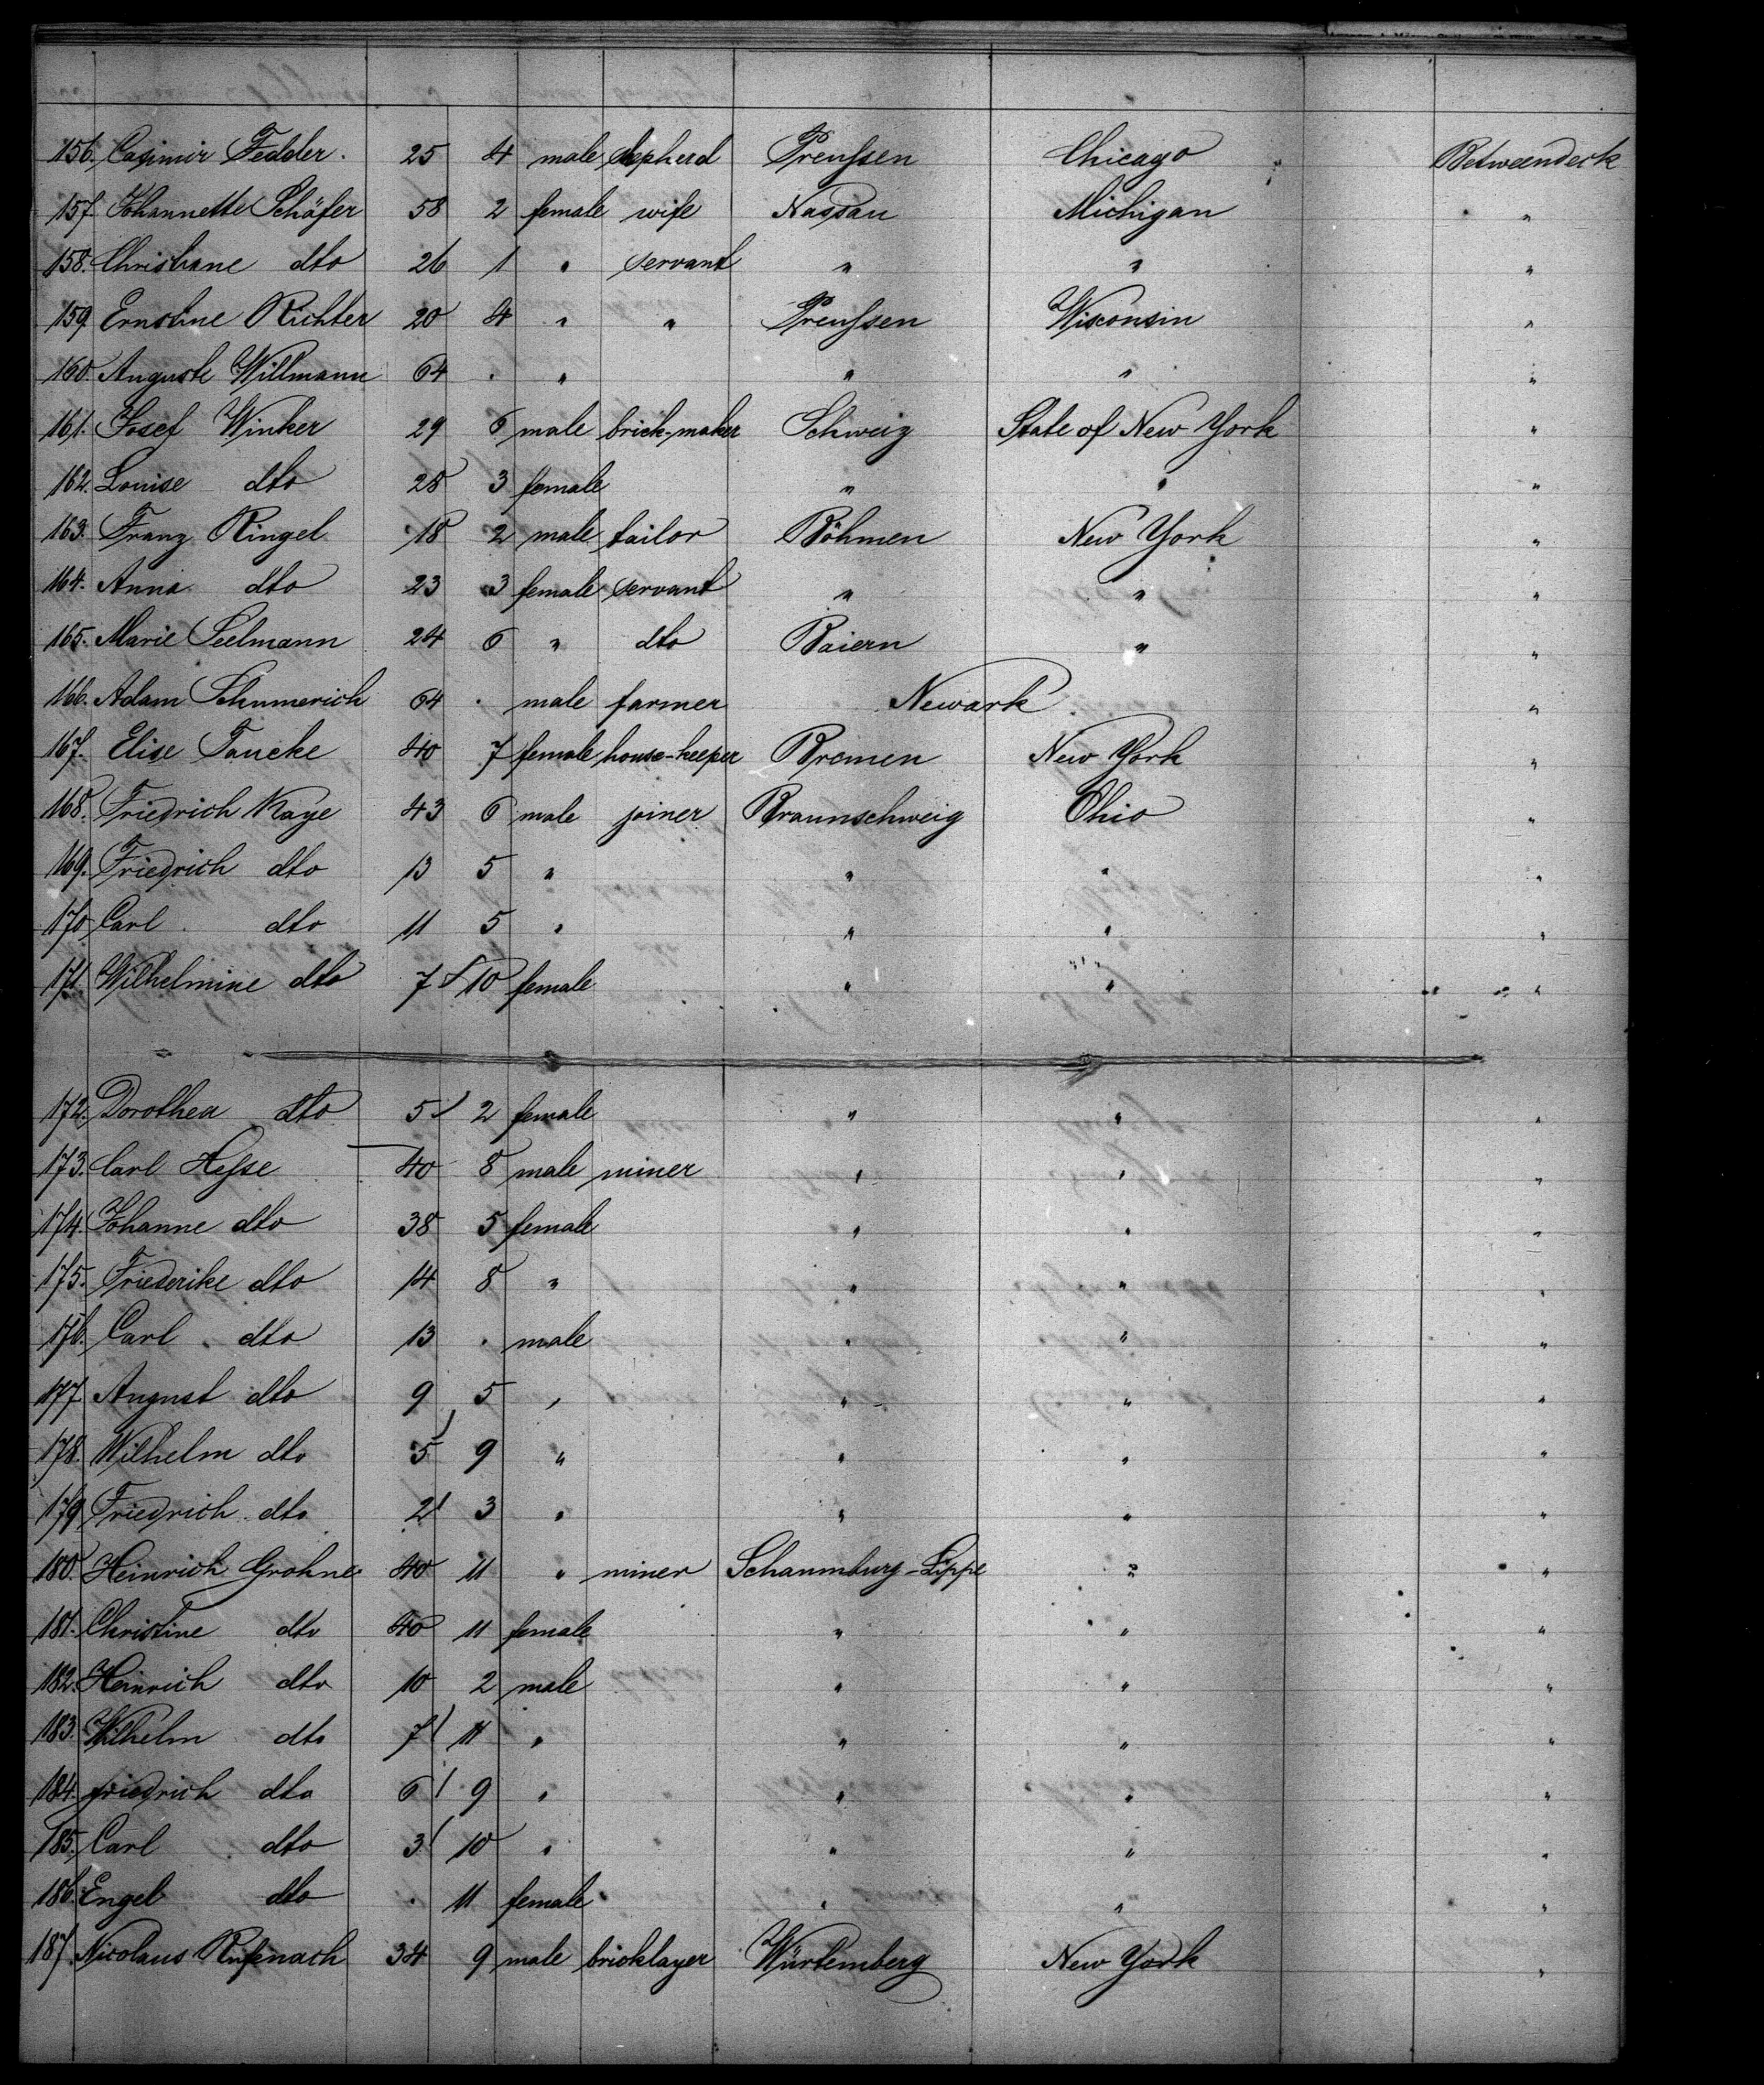 156. Casimir Fedder. 25 4 male shepherd Preußen Chicago Betweendeck
157. Johannette Schäfer 58 2 female wife Nassau Michigan "
158. Christiane dto 26 1 " servant " " "
159. Ernstine Richter 20 4 " " Preußen Wisconsin "
160. Auguste Willmann 64 . " " " "
161. Josef Winker 29 6 male brick-maker Schweiz State of New York "
162. Louise dto 28 3 female " " "
163. Franz Ringel 18 2 male tailor Böhmen New York "
164. Anna dto 23 3 female servant " " "
165. Marie Seelmann 24 6 " dto Baiern " "
166. Adam Schumerich 64 . male farmer Newark "
167. Elise Tancke 40 7 female house-keeper Bremen New York "
168. Friedrich Kaye 43 6 male joiner Braunschweig Ohio "
169. Friedrich dto 13 5 " " " "
170. Carl dto 11 5 " " " "
171. Wilhelmine dto 7 10 female " " "
172. Dorothea dto 5 2 female " " "
173. Carl Heße 40 8 male miner " " "
174. Johanne dto 38 5 female " " "
175. Friederike dto 14 8 " " " "
176. Carl dto 13 . male " " "
177. August dto 9 5 " " " "
178. Wilhelm dto 5 9 " " " "
179. Friedrich dto 2 3 " " " "
180. Heinrich Grohne 40 11 " miner Schaumburg-Lippe " "
181. Christine dto 40 11 female " " "
182. Heinrich dto 10 2 male " " "
183. Wilhelm dto 7 11 " " " "
184. friedrich dto 6 9 " " " "
185. Carl dto 3 10 " " " "
186. Engel dto . 11 female " " "
187. Nicolaus 34 9 male bricklayer Würtemberg New York "